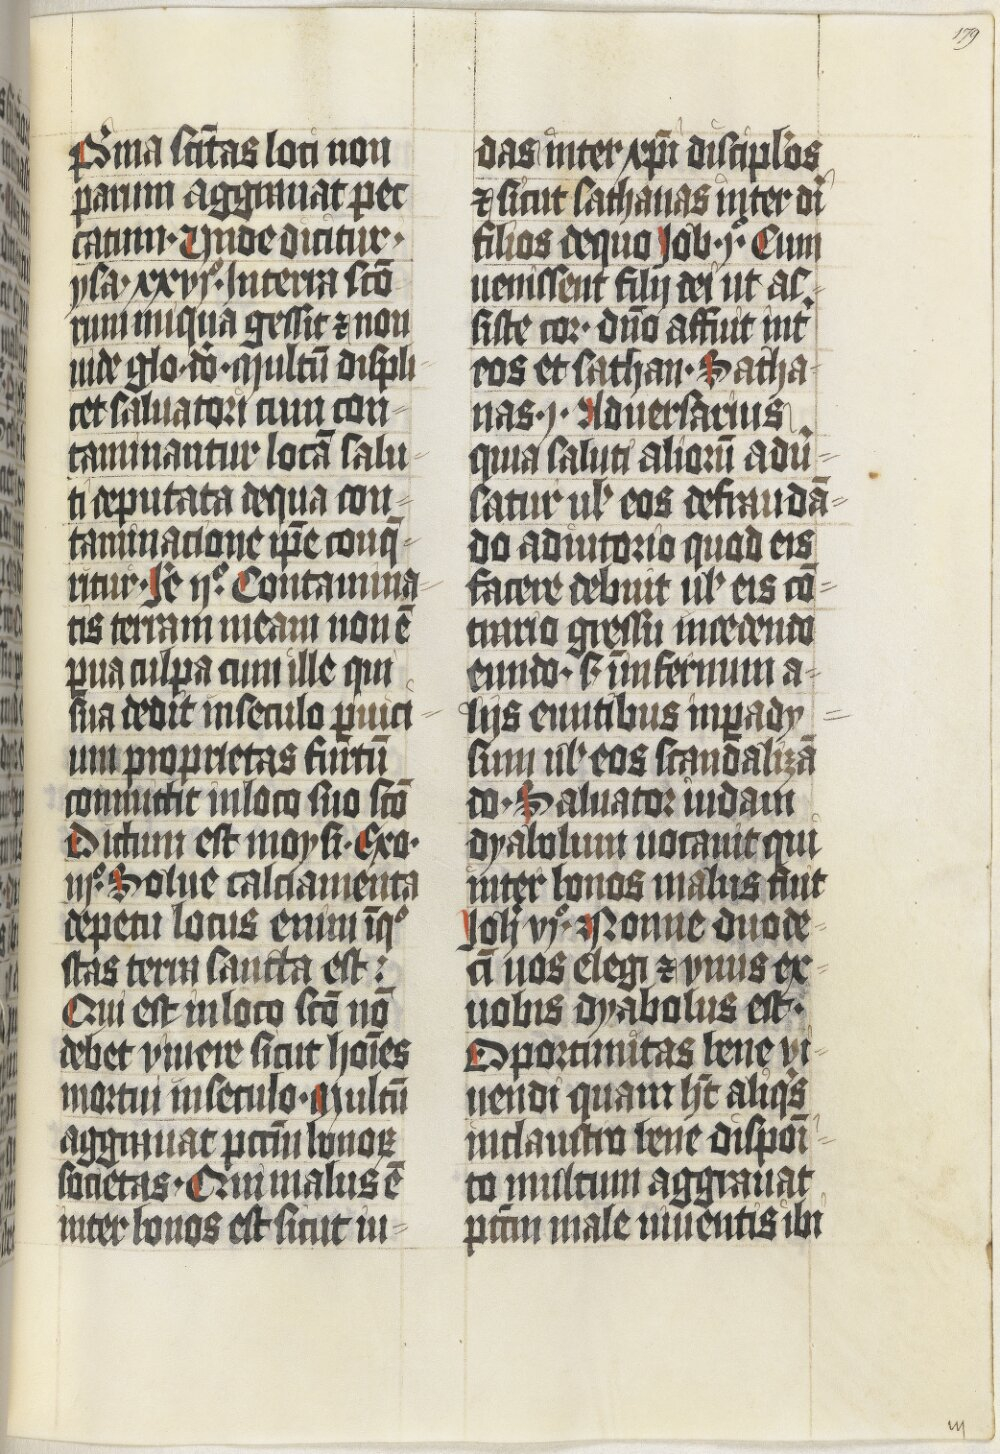 179
Sūma scītas loci non
parum aggrauat pec
catum· Vnde dicitur·
ysa· xxvjº· In terra scō
rum iniqua gessit ⁊ non
uide glo· dō· Multū displi-
cet saluatori cum con-
taminantur locā salu-
ti deputata de qua con-
taminacione ip̄e conq̄-
ritur· Je ijº· Contamina-
tis terram meam non ē
pua culpa cum ille qui
sua dedit in seculo puici-
um proprietas furtū
committit in loco suo scō
Dictum est moysi· Exo·
iijº· Solue calciamenta
de petu locus enim īqº
stas terra sancta est :
Qui est in loco scō nō
debet viuere sicut hoīes
mortui in seculo· Multū
aggrauat pctm̄ bonoꝝ
societas· Qui malus ē
inter bonos est sicut iu-
das inter xp̄i disciplos
⁊ sicut sathanas inter di
filios de quo Job· jº· Cum
uenissent filij dei ut as-
siste cor· dn̄o affuit int
eos et sathan· Satha-
nas· j· Aduersarius
quia saluti aliorū adu-
satur ul' eos defraudā-
do adiutorio quod eis
facere debuit ul' eis cō-
trario gressu incedendo
eundo· s· ī infernum a-
lijs euntibus in pady-
sum ul' eos scandalizā
do· Saluator iudam
dyabolum uocauit qui
inter bonos malus fuit
Joh vjº· Nonne duode-
cī uos elegi ⁊ vnus ex-
uobis dyabolus est·
Oportunitas bene vi-
uendi quam ht aliqs
in claustro bene disposi-
to multum aggrauat
pctm̄ male uiuentis ibi